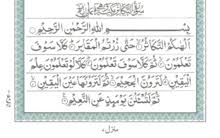 بِسْمِ اللهِ الرَّحْمٰنِ الرَّحِيْمِ
اَلْهٰىكُمُ التَّكَاثُرُ حَتّٰى زُرْتُمُ الْمَقَابِرَ كَلَّا سَوْفَ
تَعْلَمُوْنَ ثُمَّ كَلَّا سَوْفَ تَعْلَمُوْنَ كَلَّا لَوْ تَعْلَمُوْنَ عِلْمَ
الْيَقِيْنِ لَتَرَوُنَّ الْجَحِيْمَ ثُمَّ لَتَرَوُنَّهَا عَيْنَ الْيَقِيْنِ
ثُمَّ لَتُسْئَلُنَّ يَوْمَئِذٍ عَنِ النَّعِيْمِ